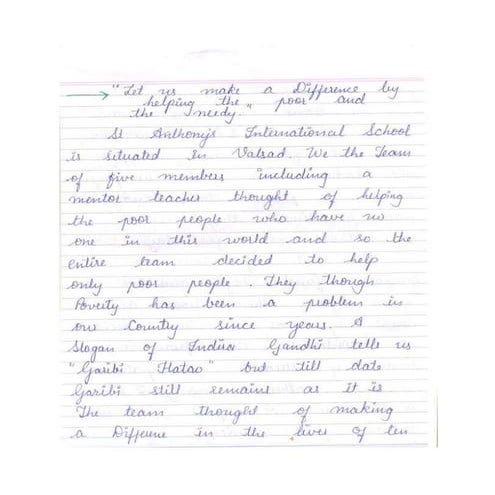 "Let us make a Difference by
helping the poor and
the needy."
St Anthony's International School
is situated in Valsad. We the Team
of five members including a
mentor teacher thought of helping
the poor people who have no
one in this world and so the
entire team decided to help
only poor people. They though
Poverty has been a problem in
our Country since years. A
Slogan of Indira Gandhi tells us
"Garibi Hatao" but till date
Garibi still remains as it is
The team thought of making
a Diffeune in the lives of ten